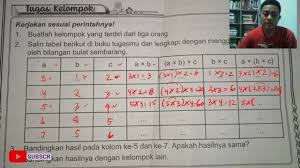 Tugas Kelompok
Kerjakan sesuai perintahnya!
1. Buatlah kelompok yang terdiri dari tiga orang
2. Salin tabel berikut di buku tugasmu dan lengkapi dengan
oleh bilangan bulat sembarang.
a b c a × b (a × b) × c b × c a × (b × c)
3 1 2 3x1=3 (3x1)x2=6 1x2=2 3x(1x2)=6
4 2 3 4x2=8 (4x2)x3=24 2x3=6 4x(2x3)=24
5 3 4 5x3=15 (5x3)x4=60 3x4=12 5x(
6 4 5 ... ... ... ...
7 5 6 ... ... ... ...
3. Bandingkan hasil pada kolom ke-5 dan ke-7. Apakah hasilnya sama?
hasilnya dengan kelompok lain.
SUBSCR